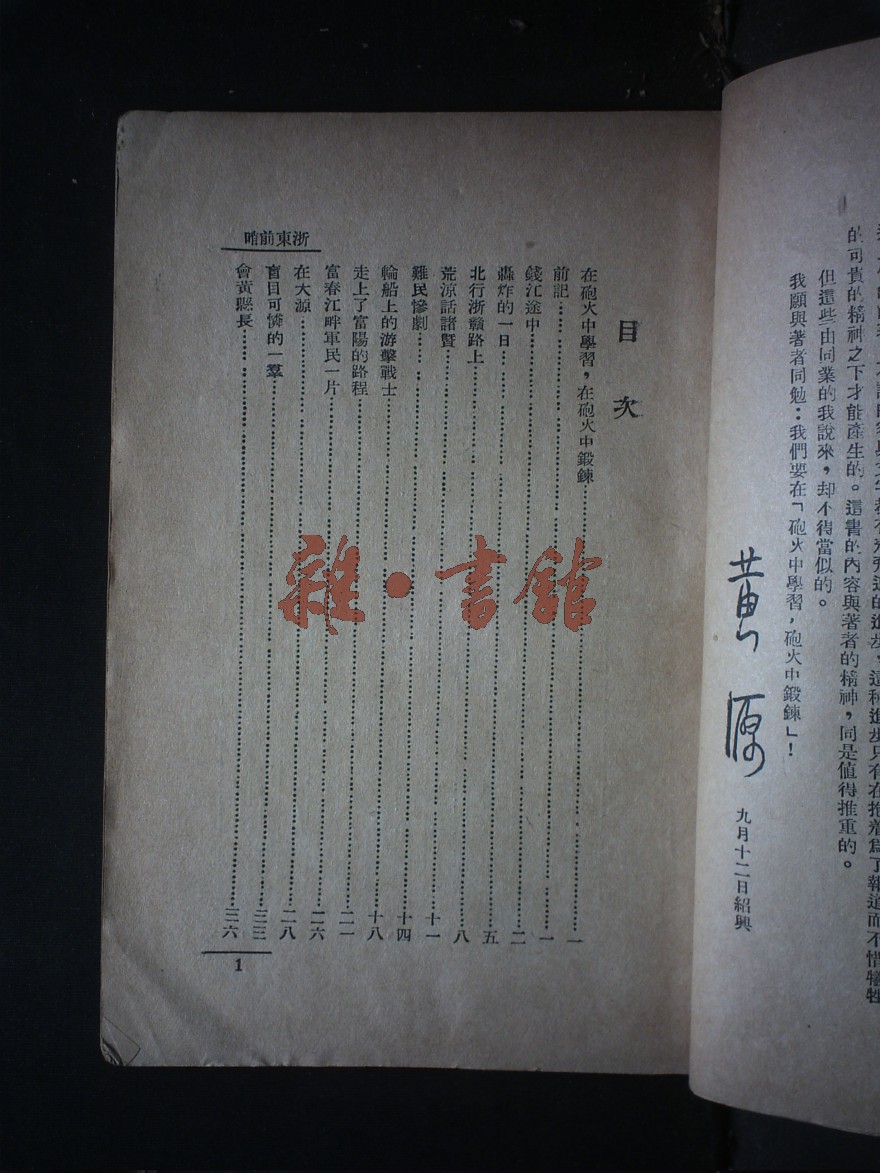 的進步,這種進步只有在抱着爲了報道而不惜犧牲
的可貴的精神之下才能產生的。這書的內容與著者的精神,同是值得推重的。
但這些由同業的我說來,却不得當似的。
我願與著者同勉:我們要在「砲火中學習,砲火中鍛鍊」!
黃源
九月十二日紹興
浙東前哨
目次
在砲火中學習,在砲火中鍛鍊……一
前記……一
錢江途中……二
轟炸的一日……五
北行浙贛路上……八
荒涼話諸暨……十一
難民慘劇……十四
輪船上的游擊戰士……十八
走上了富陽的路程……二一
富春江畔軍民一片……二六
在大源……二八
盲目可憐的一羣……三三
會黃縣長……三六
1
雜·書館